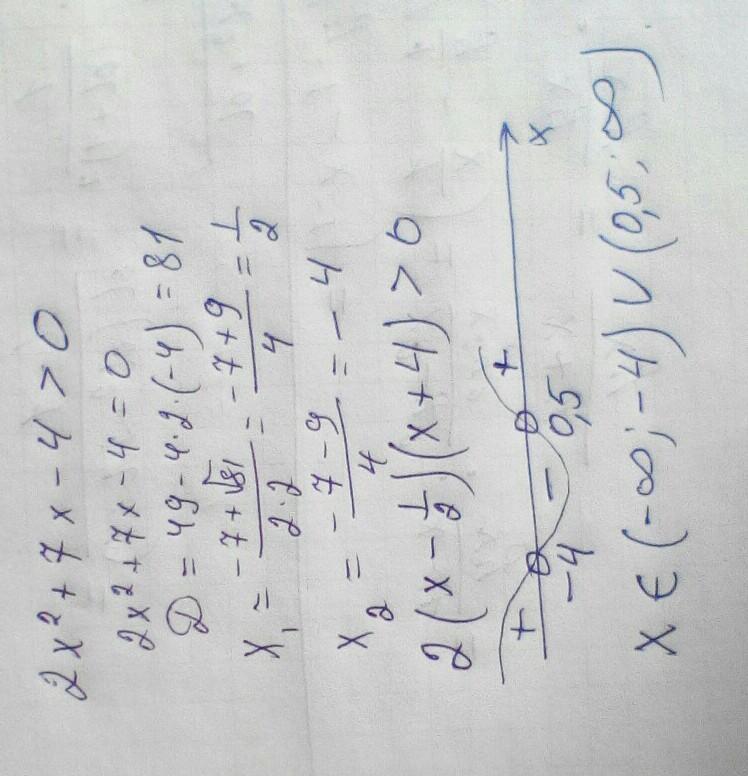 2x² + 7x - 4 > 0
2x² + 7x - 4 = 0
D = 49 - 4·2·(-4) = 81
x₁ = (-7 + √81)/(2·2) = (-7 + 9)/4 = 1/2
x₂ = (-7 - 9)/4 = -4
2(x - 1/2)(x + 4) > 0
+ - + x
-4 0,5
x ∈ (-∞; -4) ∪ (0,5; ∞)